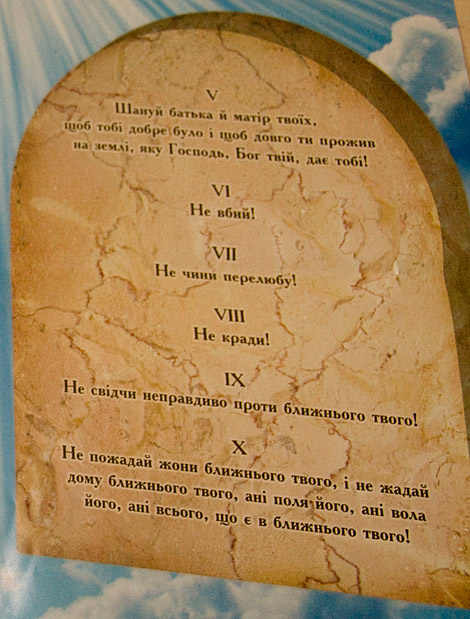 V
Шануй батька й матір твоїх,
щоб тобі добре було і щоб довго ти прожив
на землі, яку Господь, Бог твій, дає тобі!
VI
Не вбий!
VII
Не чини перелюбу!
VIII
Не кради!
IX
Не свідчи неправдиво проти ближнього твого!
X
Не пожадай жони ближнього твого, і не жадай
дому ближнього твого, ані поля його, ані вола
його, ані всього, що є в ближнього твого!